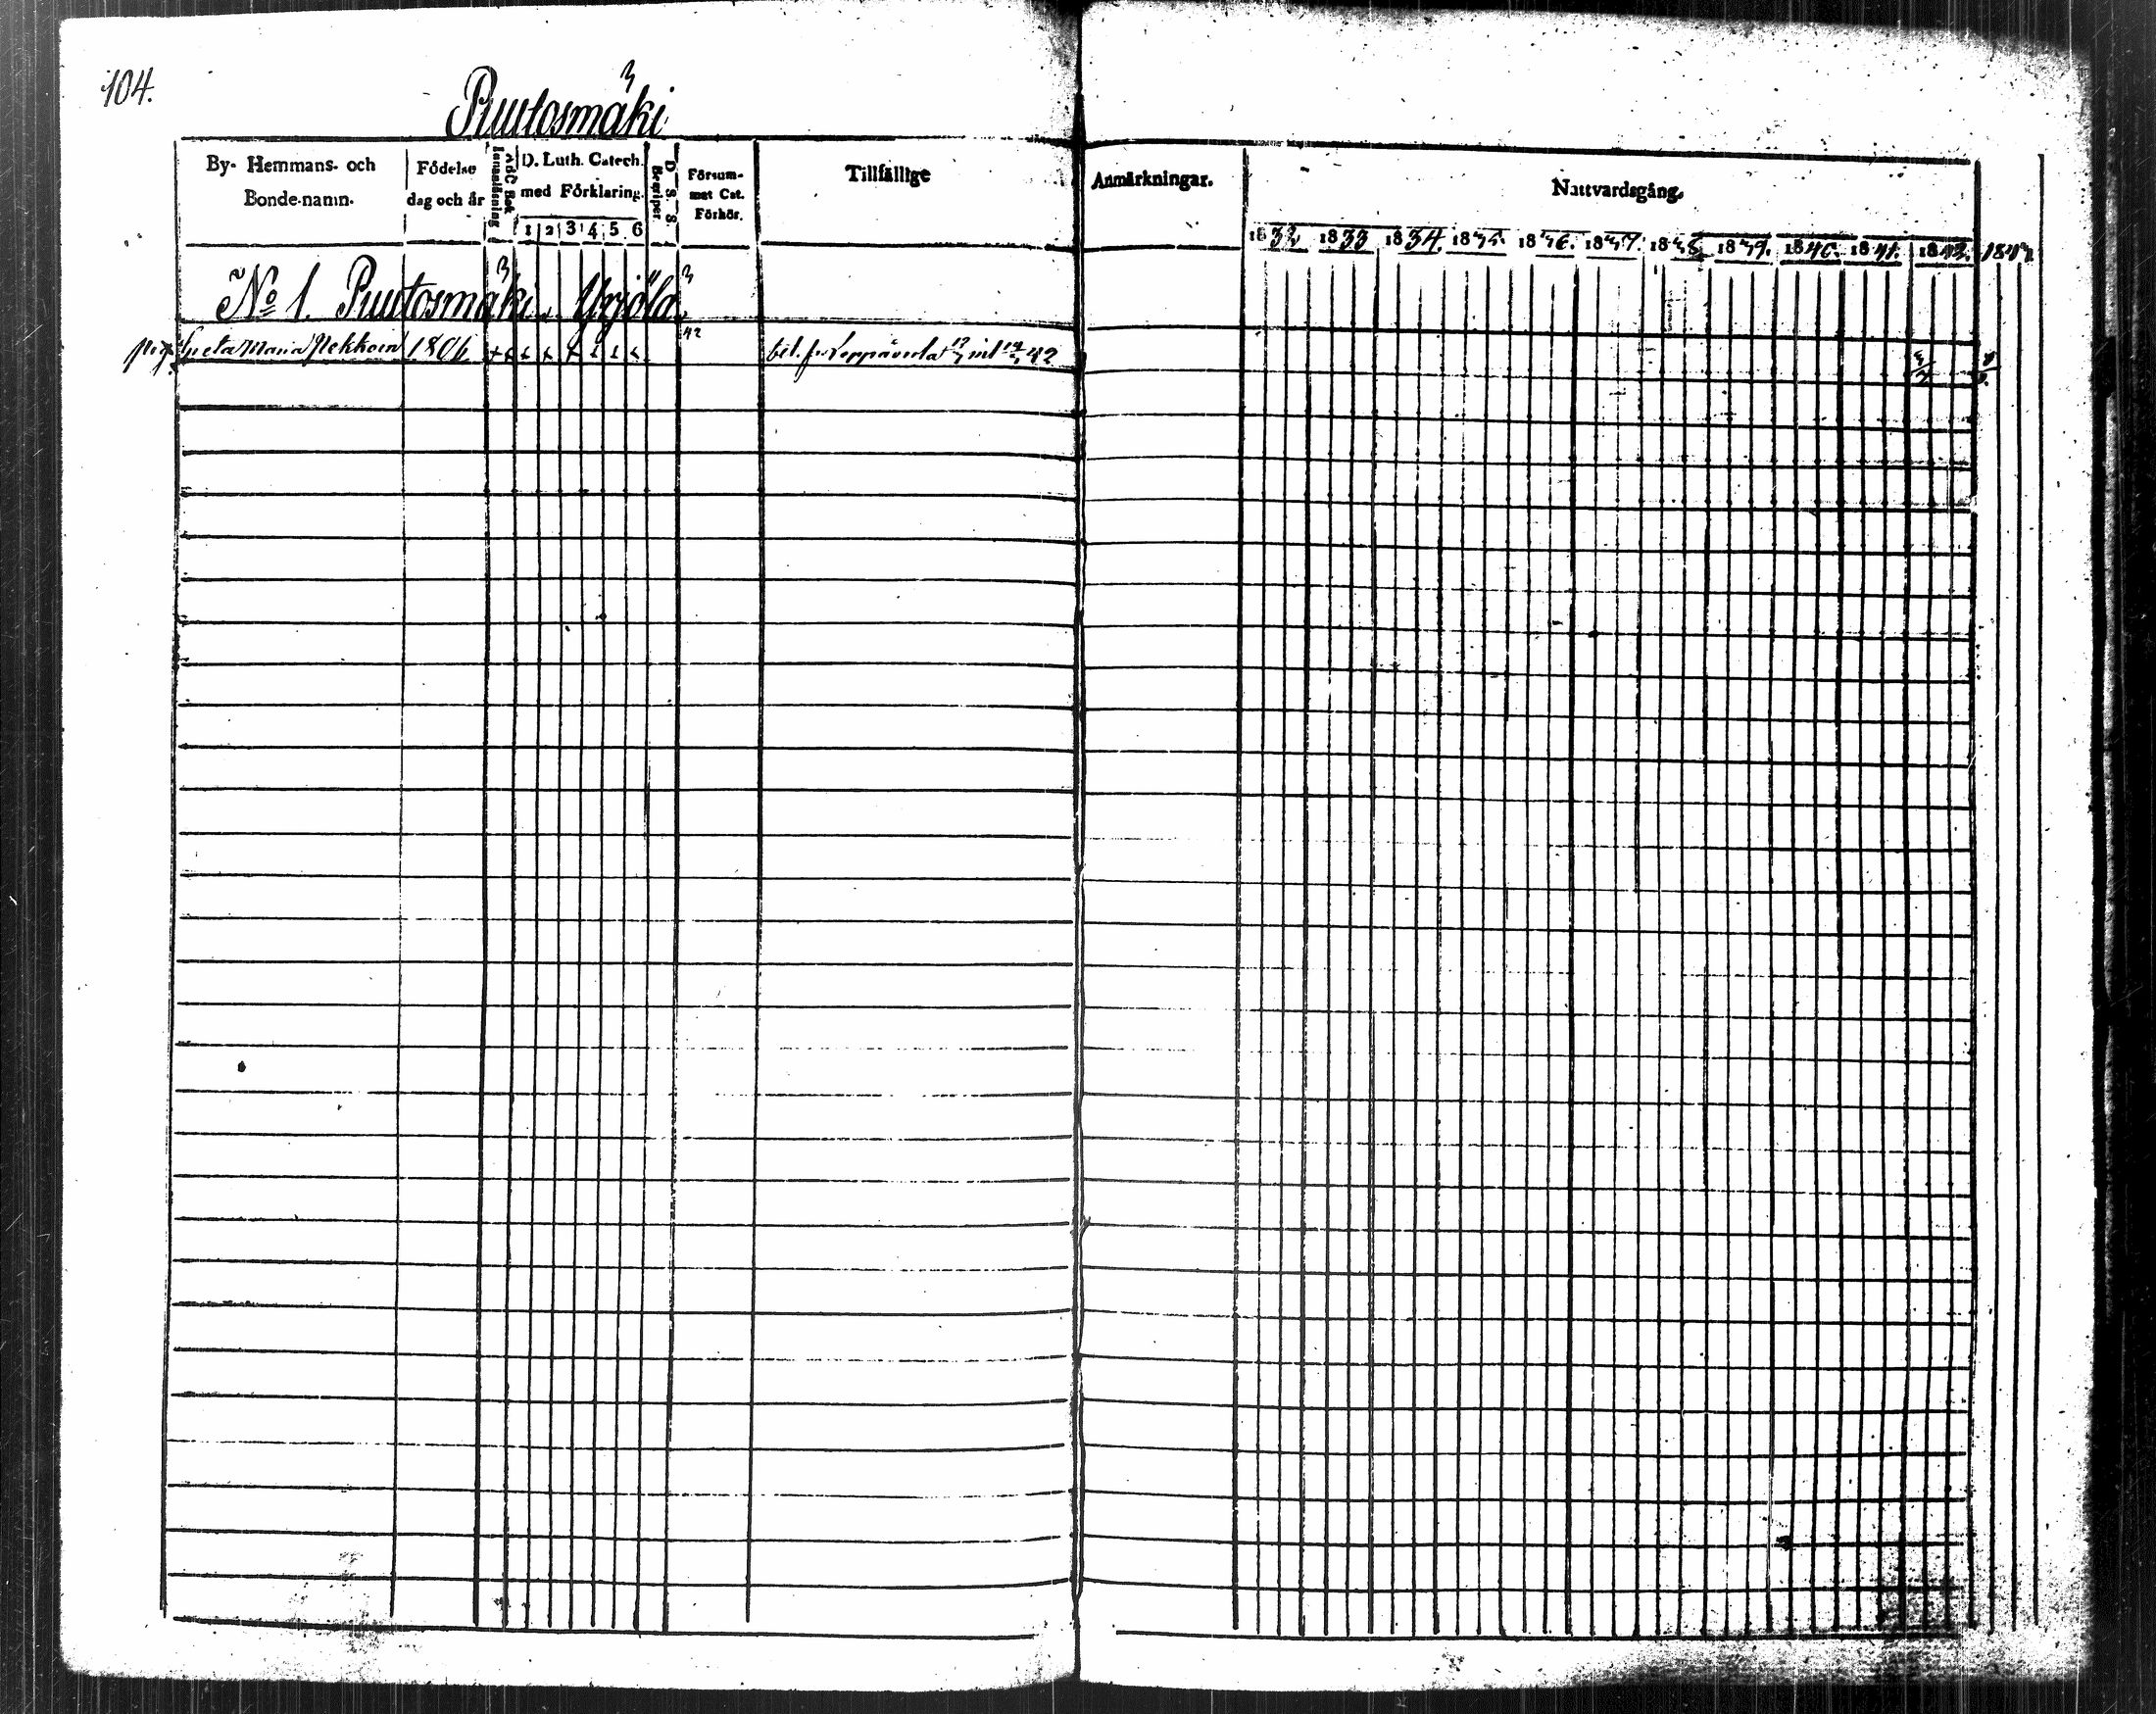 104.
Puutosmäki
By- Hemmans- och
Bonde-namn.
Födelse
dag och år
Innanläsning
ABC Bok
D. Luth. Catech.
med Förklaring.
1 2 3 4 5 6
D. S. S.
Begriper
Försum-
mat Cat.
Förhör.
Tillfällige
Anmärkningar.
Nattvardsgång.
1832 1833 1834. 1835. 1836. 1837. 1838. 1839. 1840. 1841. 1842. 1843
No 1. Puutosmäki. Yrjölä.
pig. Greta Maria Pekkoin 1806 42 bet. fr. Leppävirta int 42